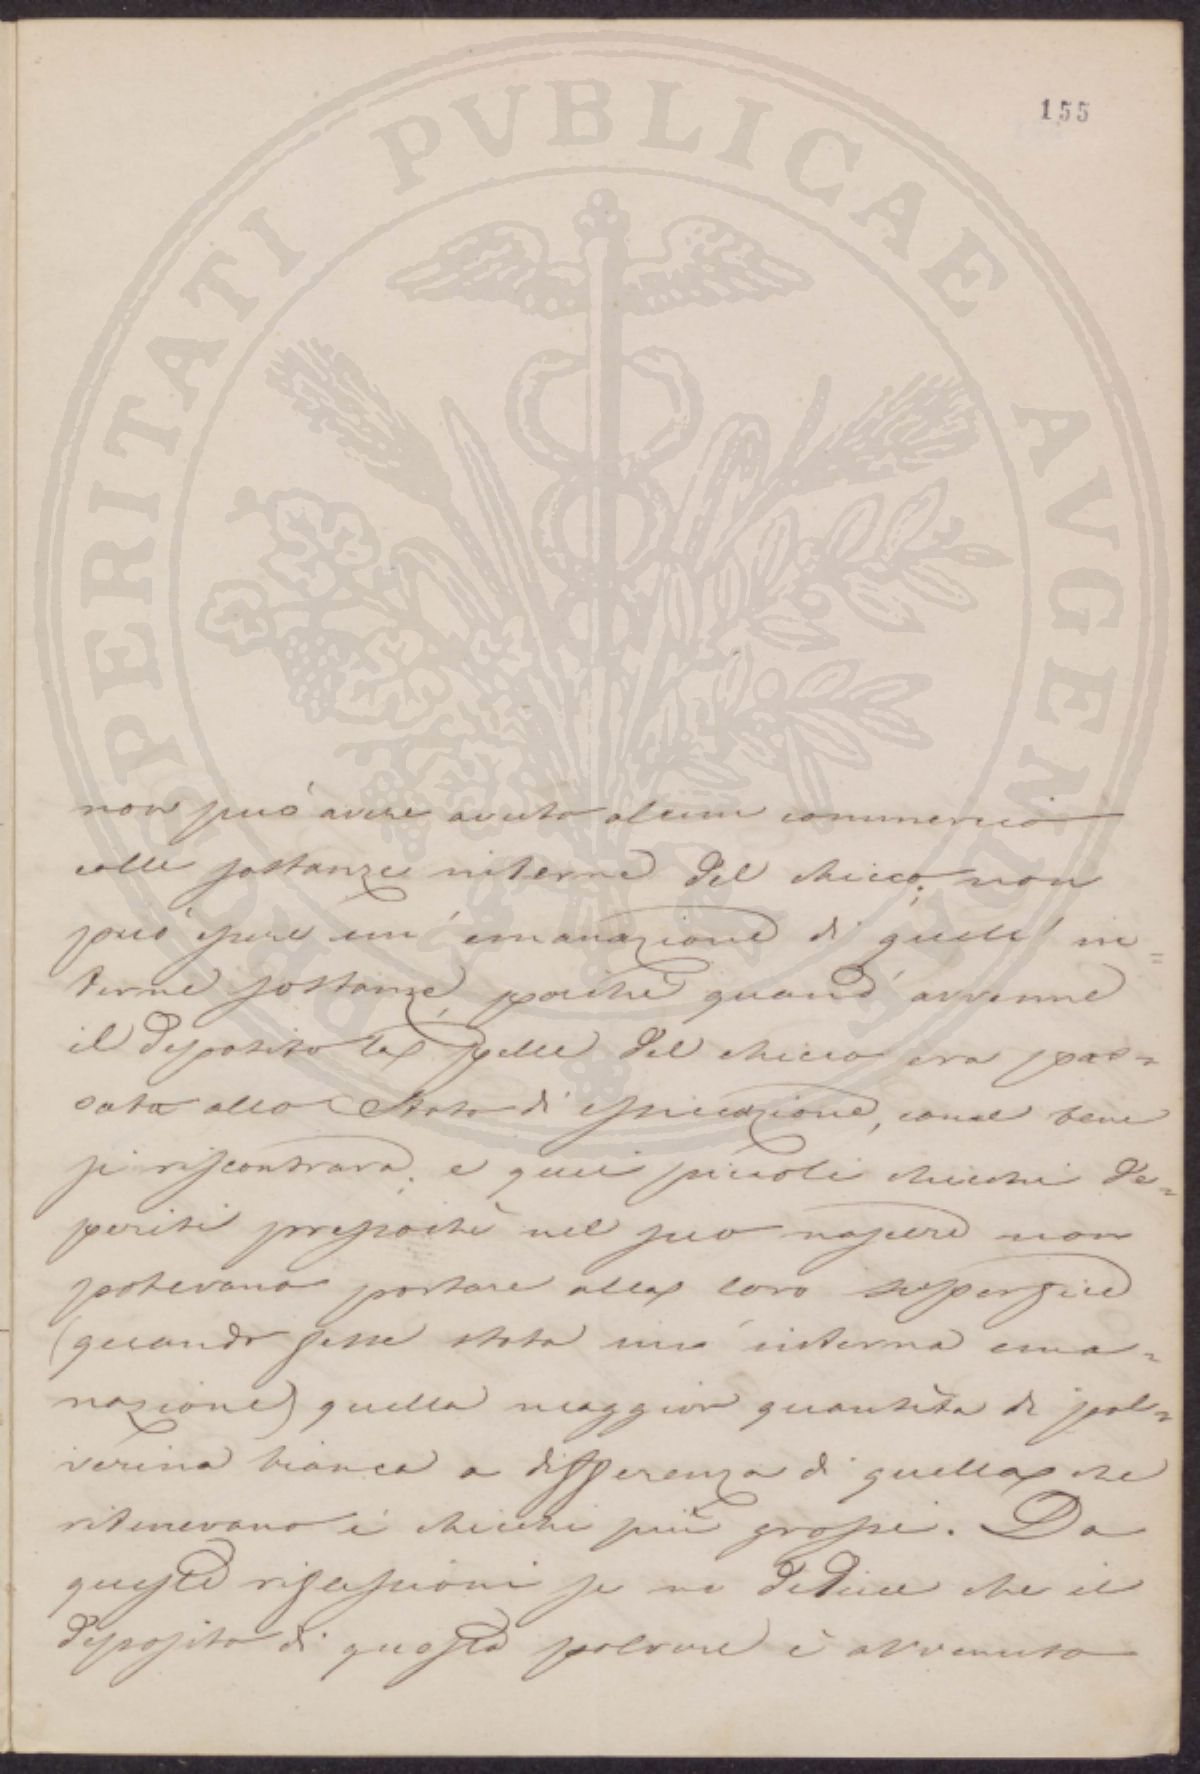 155
PROSPERITATI PVBLICAE AVGENDAE
non può avere avuto alcun commercio
colle sostanze interne del chicco; non
può essere un' emanazione di queste in=
terne sostanze, poichè quand' avvenne
il deposito la pelle del chicco era pas=
sata allo stato di essicazione, come bene
si riscontrava; e quei piccoli chicchi de=
periti pressochè nel suo nascere non
potevano portare alla loro superficie
(quando fosse stata un' interna ema=
nazione) quella maggior quantità di pol=
verina bianca a differenza di quella che
ritenevano i chicchi più grossi. Da
queste riflessioni se ne deduce che il
deposito di questa polvere è avvenuto